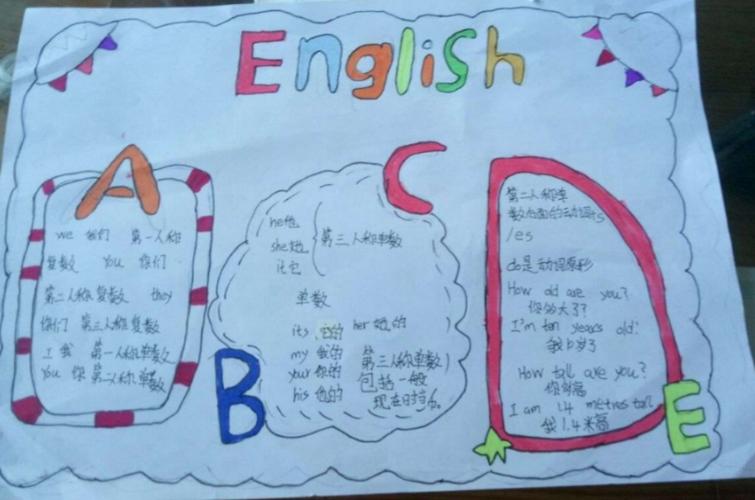 English
A
we 我们 第一人称
复数 You 你们
第二人称复数 they
你们 第三人称复数
I 我 第一人称单数
You 你 第二人称单数
B
C
he他
she她
it它
第三人称单数
单数
its 它的 her她的
my 我的 第三人称单数
your你的 包括一般
his 他的 现在时
第二人称单
数后面的动词s
/es
do是动词原形
How old are you?
你多大了?
I'm ten years old.
我10岁了
How tall are you?
你多高
I am 1.4 metres tall
我1.4米高
E